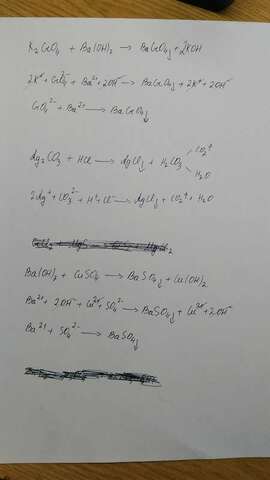 K₂CrO₄ + Ba(OH)₂ → BaCrO₄↓ + 2KOH
2K⁺ + CrO₄²⁻ + Ba²⁺ + 2OH⁻ → BaCrO₄↓ + 2K⁺ + 2OH⁻
CrO₄²⁻ + Ba²⁺ → BaCrO₄↓
Ag₂CO₃ + HCl → AgCl↓ + H₂CO₃ CO₂↑
H₂O
2Ag⁺ + CO₃²⁻ + H⁺ + Cl⁻ → AgCl↓ + CO₂↑ + H₂O
Ba(OH)₂ + CuSO₄ → BaSO₄↓ + Cu(OH)₂
Ba²⁺ + 2OH⁻ + Cu²⁺ + SO₄²⁻ → BaSO₄↓ + Cu²⁺ + 2OH⁻
Ba²⁺ + SO₄²⁻ → BaSO₄↓